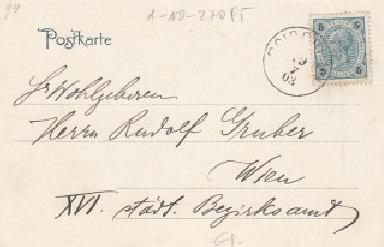 94
A-NÖ-270PT
Postkarte
5 5
Sr Wohlgeboren
Herrn Rudolf Gruber
Wien
XVI. städt. Bezirksamt